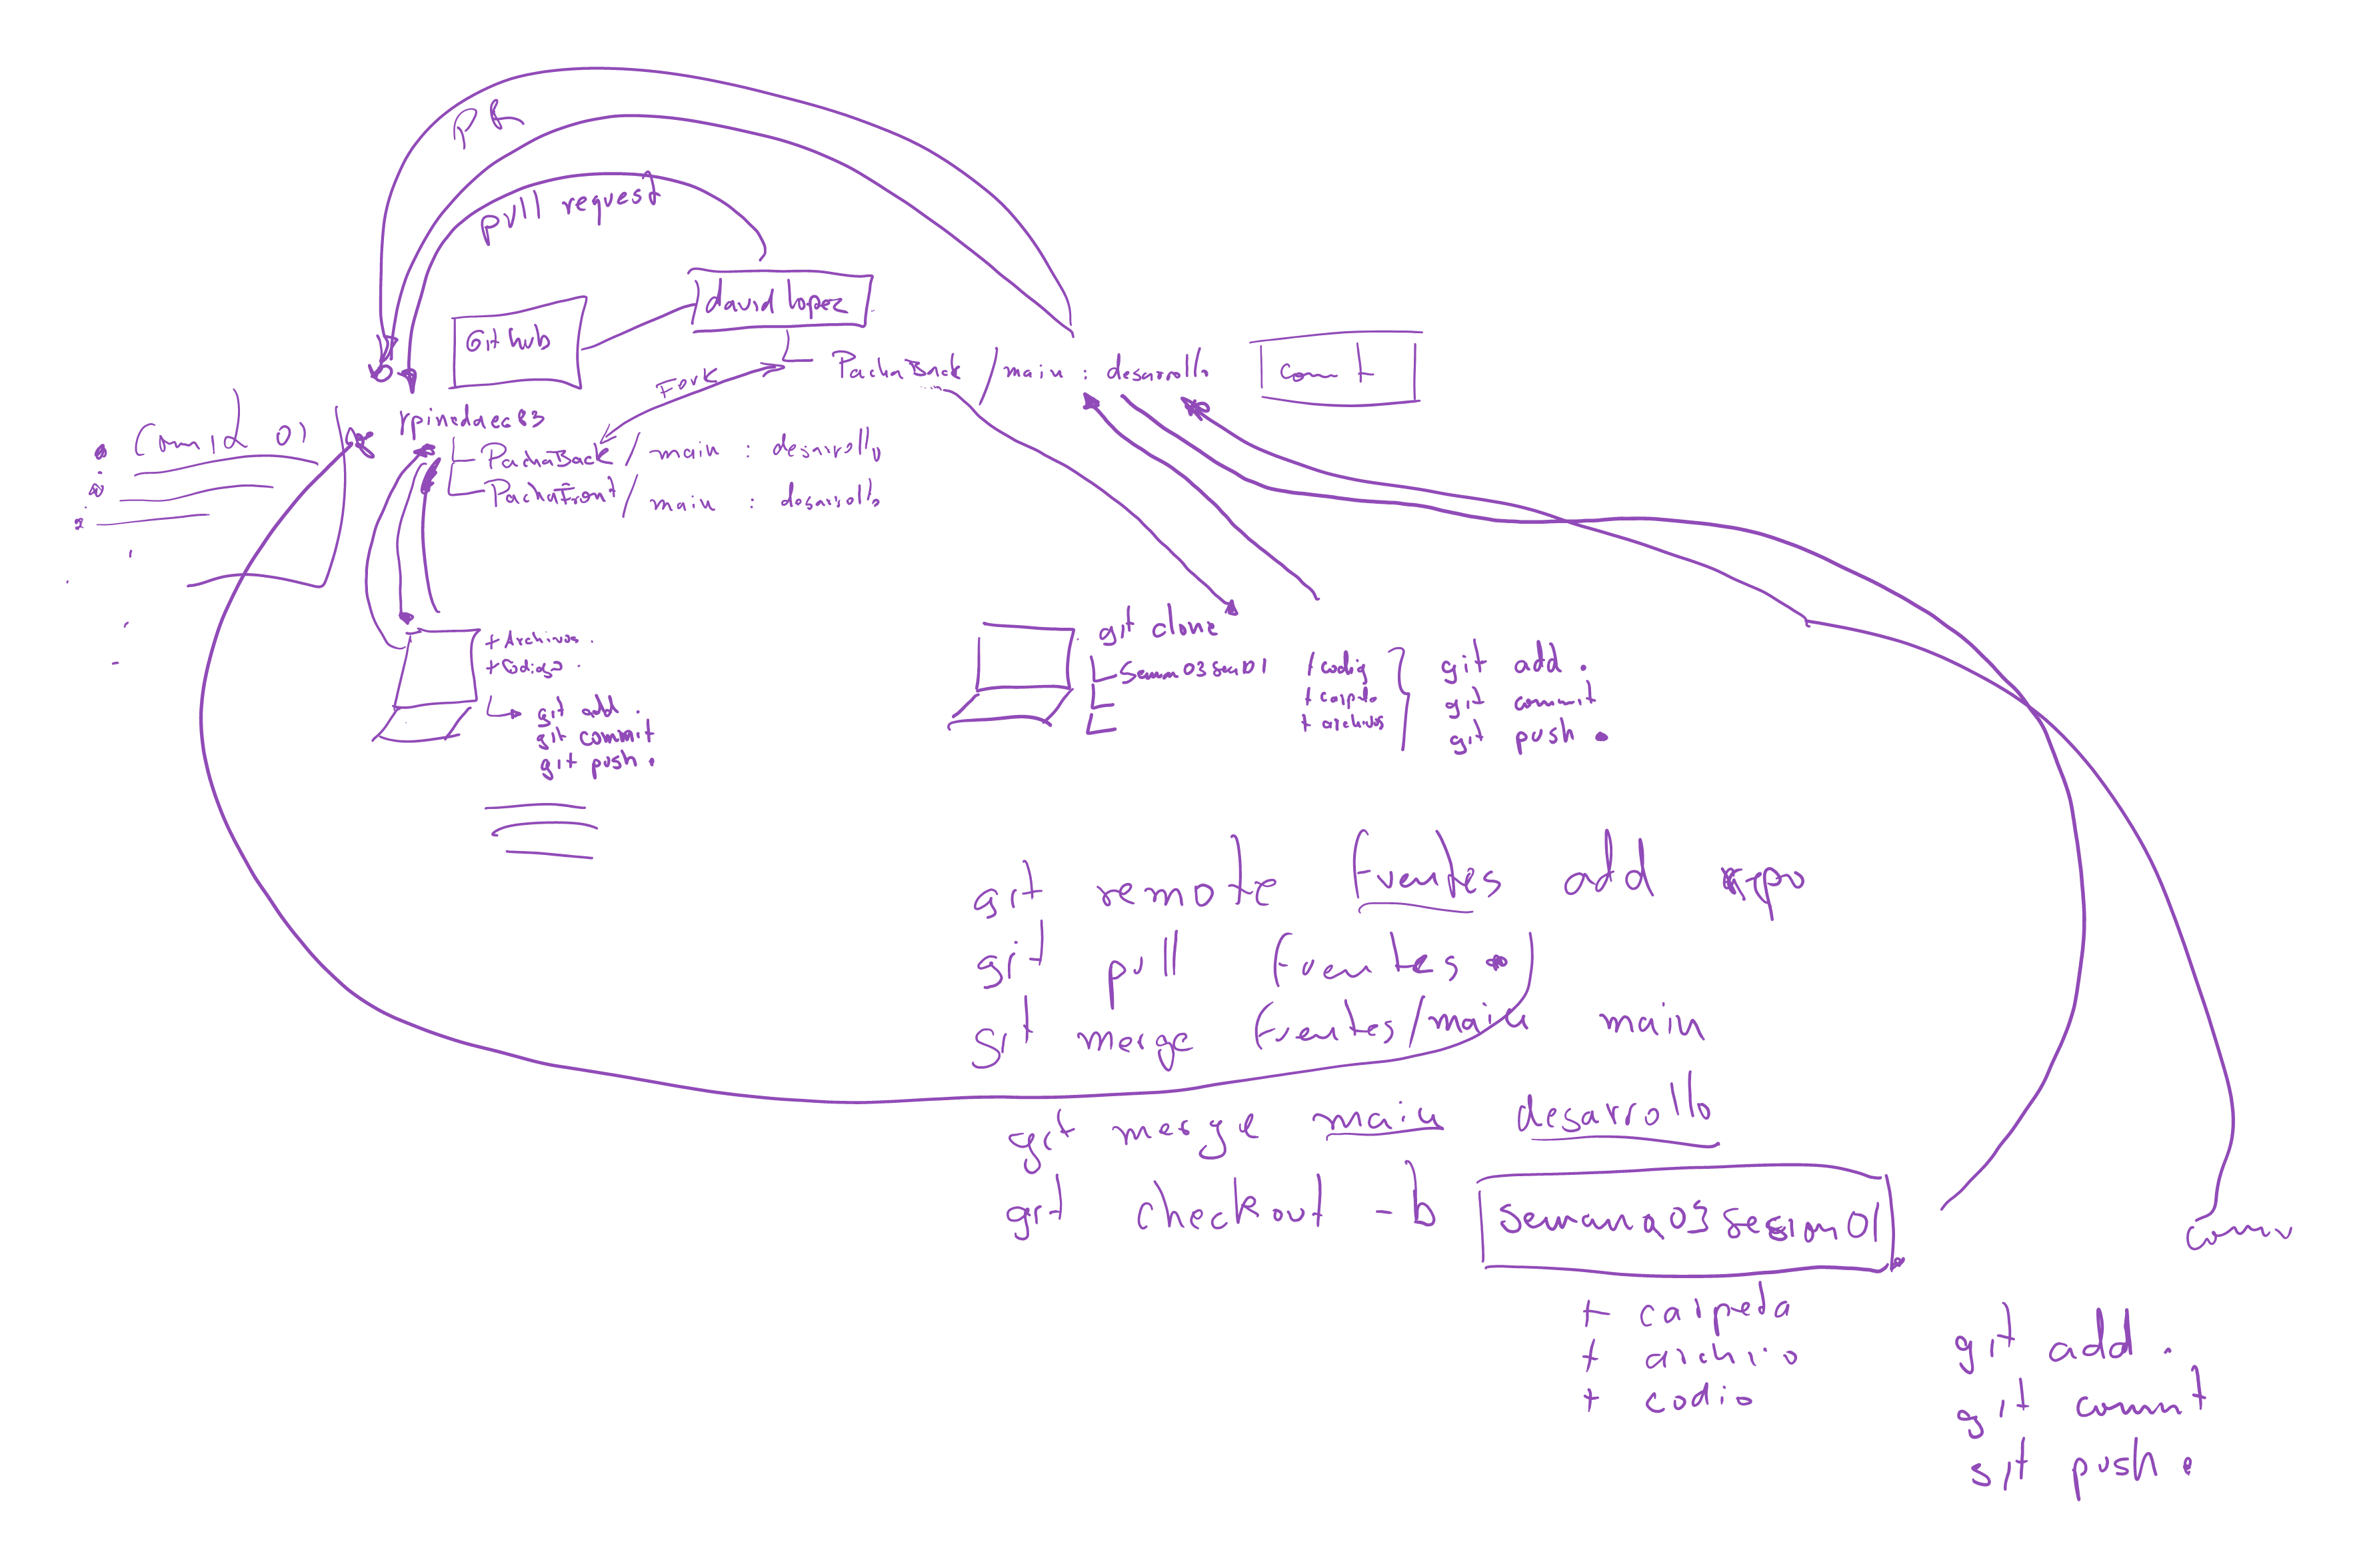 PR
pull request
david lopez
GitHub
Fork
PachaBack / main : desarrollo
Comit
rpinedaec83
PachaBack / main : desarrollo
PachaFront / main : desarrollo
+ Archivos.
+ Codigo.
git add .
git commit
git push.
git clone
+ codig
+ carpta
+ archivos
git add .
git commit
git push .
git remote fuentes add repo
git pull fuentes
git merge fuentes/main main
git merge main desarrollo
git checkout -b semana03sesion01
+ carpeda
+ archio
+ codio
git add .
git commit
git push .